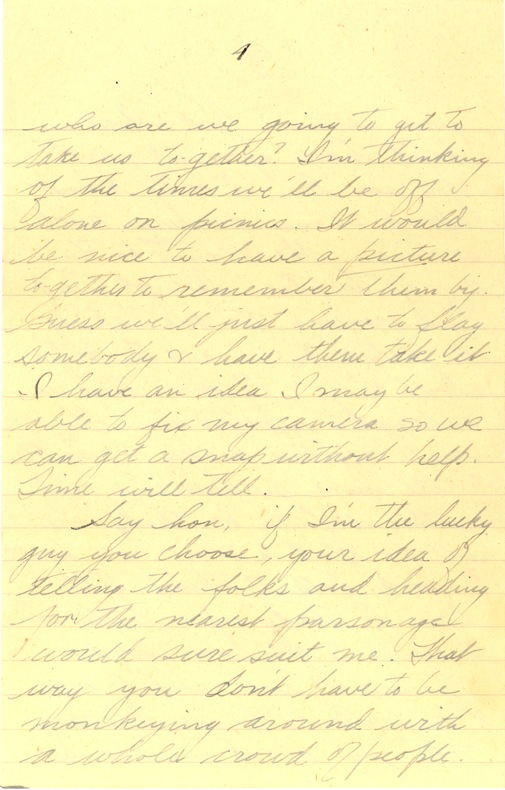 4
who are we going to get to
take us to-gether? I'm thinking
of the times we'll be off
alone on picnics. It would
be nice to have a picture
to-gether to remember them by.
Guess we'll just have to flag
somebody & have them take it
I have an idea I may be
able to fix my camera so we
can get a snap without help.
Time will tell.
Say hon, if I'm the lucky
guy you choose, your idea of
telling the folks and heading
for the nearest parsonage
would sure suit me. That
way you don't have to be
monkeying around with
a whole crowd of people.